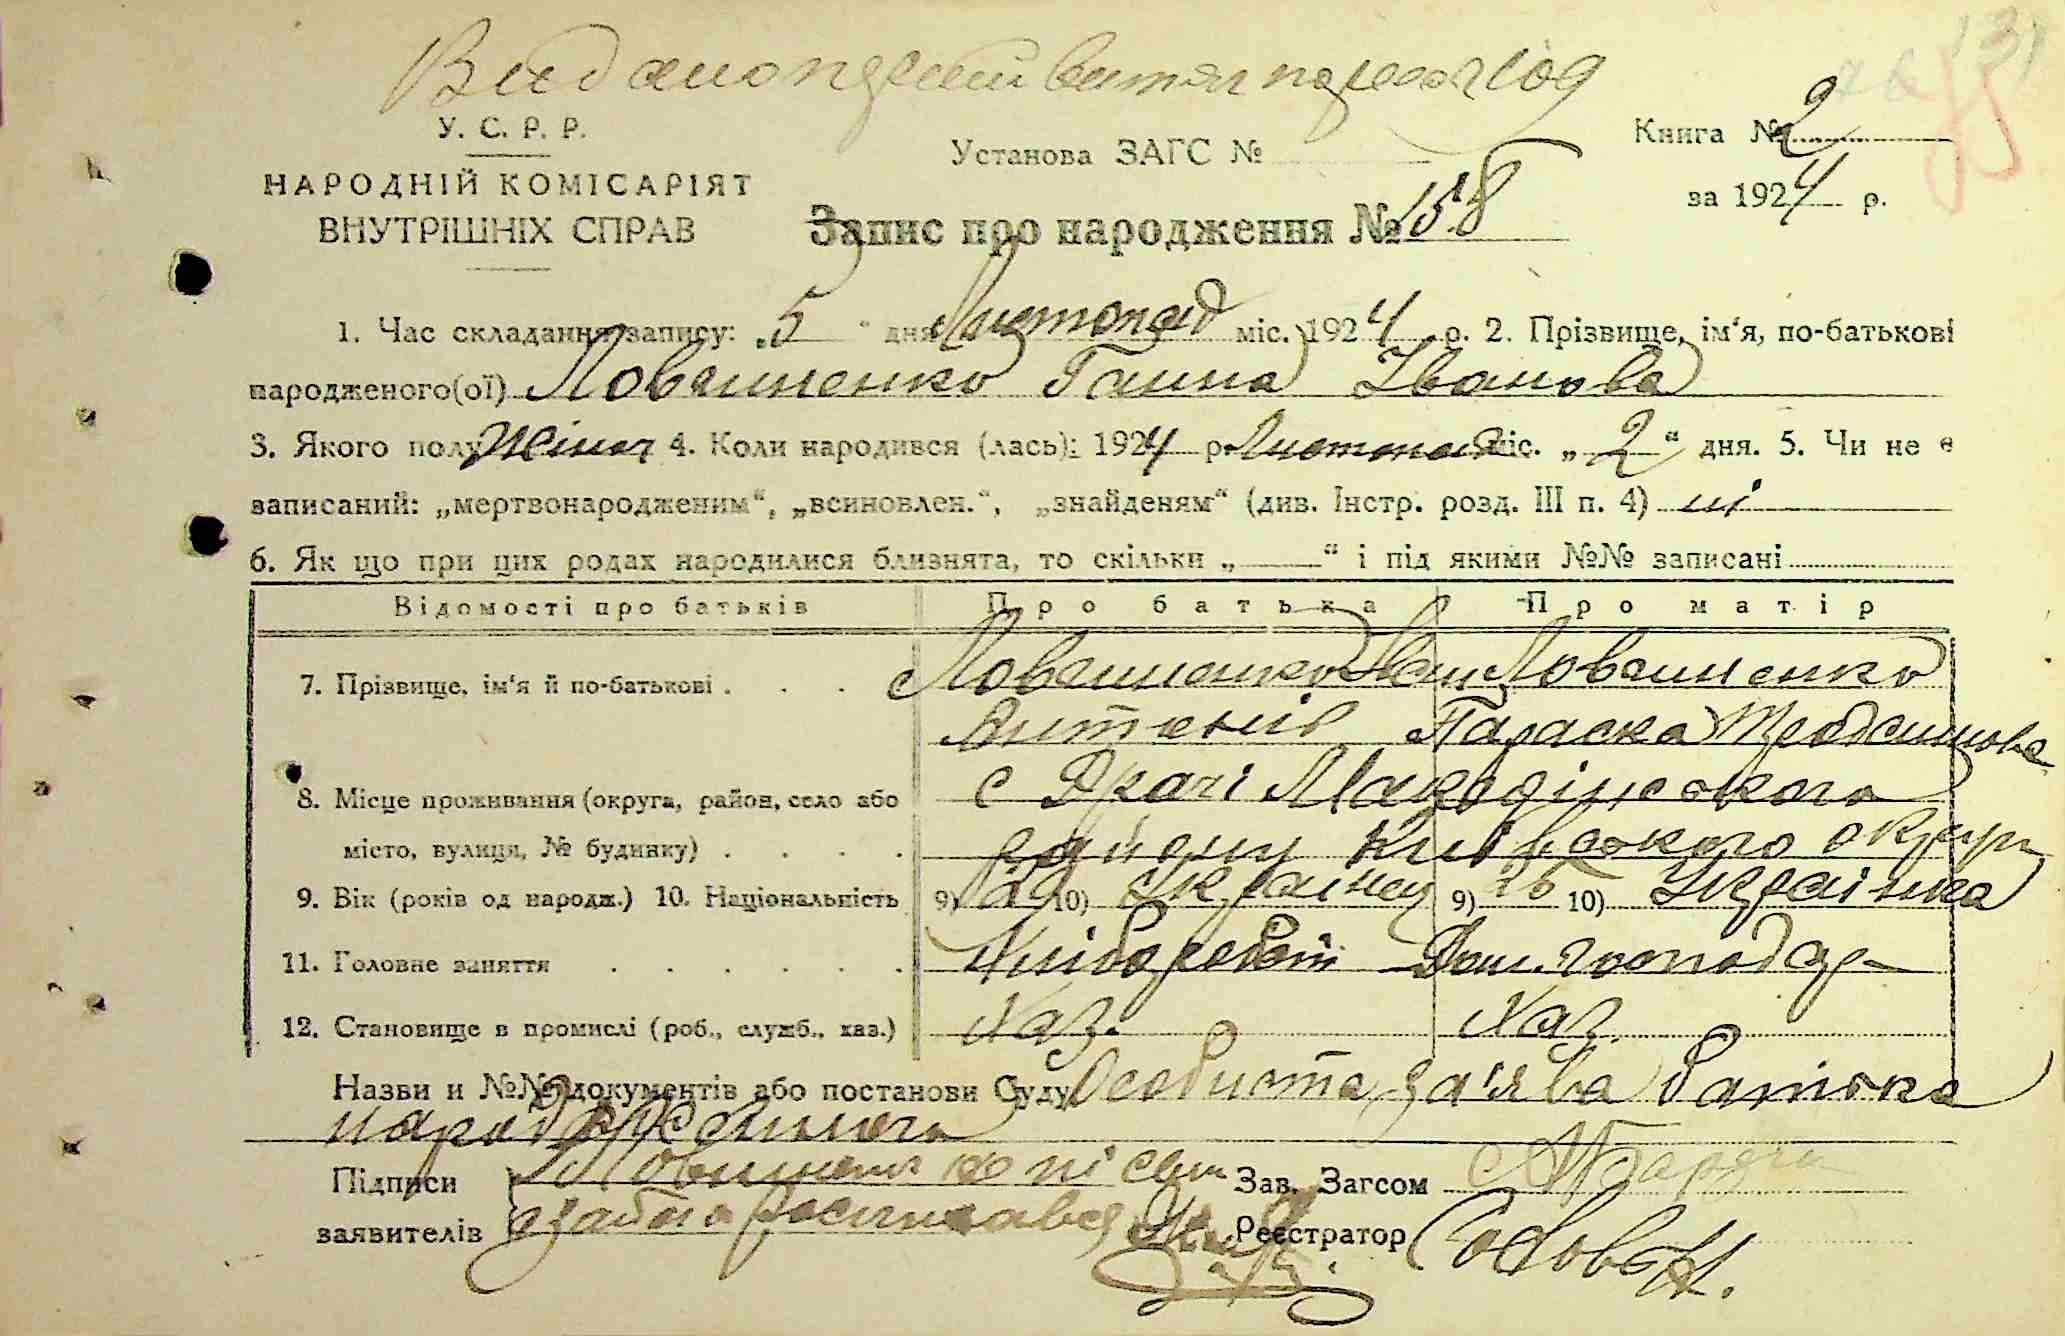 Видано
У. С. Р. Р.
НАРОДНІЙ КОМІСАРІЯТ
ВНУТРІШНІХ СПРАВ
Установа ЗАГС №
Книга № 2
за 1924 р.
Запис про народження № 158
1. Час складання запису: „5“ дня Листопад міс. 1924 р. 2. Прізвище, ім‘я, по-батькові
народженого(ої) Ловаиненко Ганна Іванова
3. Якого полу Жіноч 4. Коли народився (лась): 1924 р. Листопад міс. „2“ дня. 5. Чи не є
записаний: „мертвонародженим“, „всиновлен.“, „знайденям“ (див. Інстр. розд. III п. 4) ні
6. Як що при цих родах народилися близнята, то скільки „ “ і під якими №№ записані
Відомості про батьків Про батька Про матір
7. Прізвище, ім‘я й по-батькові . . . Ловаиненко Іван Ловаиненко
Антонів Параска
8. Місце проживання (округа, район, село або с Драчі
місто, вулиця, № будинку) . . . . району Київського округи
9. Вік (років од народж.) 10. Національність 9) 29 10) Українец 9) 25 10) Українка
11. Головне заняття . . . . . . Хлібороб Дом. господар
12. Становище в промислі (роб., служб., хаз.) Хаз. Хаз.
Назви и №№ документів або постанови Суду Особиста заява батька
народженного
Підписи Зав. Загсом
заявителів Реєстратор